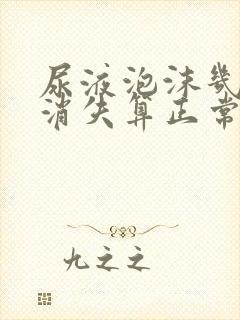 尿液泡沫几
消失算正常
九之之